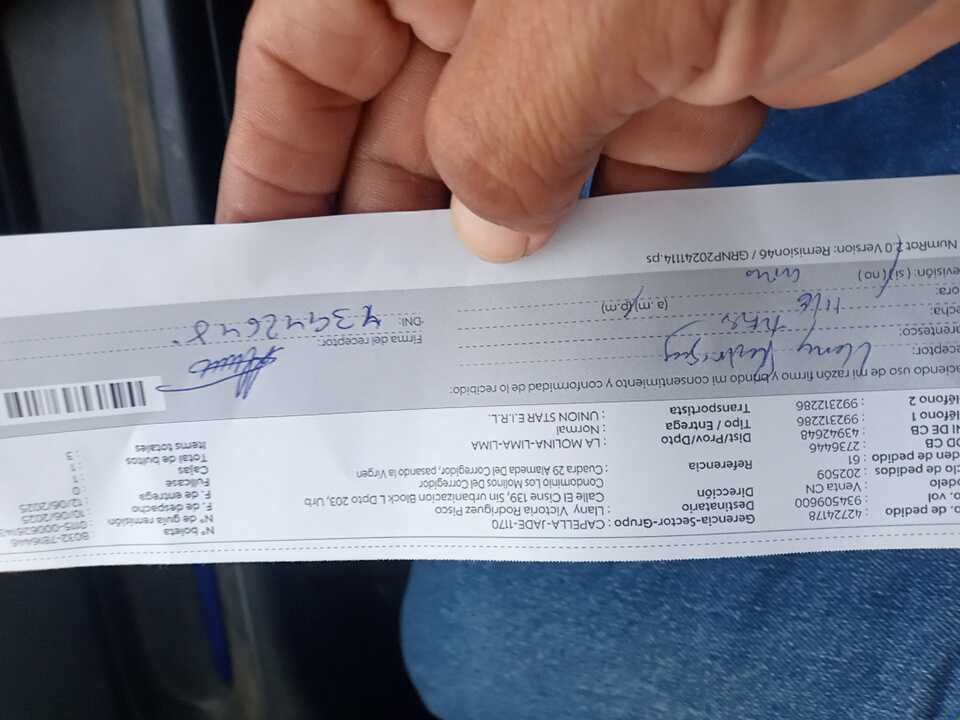 o. de pedido : 42724178
o. vol : 934509600
odelo : Venta CN
clo de pedidos : 202509
den de pedido : 61
OD CB : 2736446
NI DE CB : 43942648
eléfono 1 : 992312286
eléfono 2 : 992312286
Gerencia-Sector-Grupo : CAPELLA-JADE-1170
Destinatario : Llany Victoria Rodriguez Pisco
Dirección : Calle El Cisne 139, Sin urbanizacion Block L Dpto 203, Urb
Condominio Los Molinos Del Corregidor
Referencia : Cuadra 29 Alameda Del Corregidor, pasando la Virgen
Dist/Prov/Dpto : LA MOLINA-LIMA-LIMA
Tipo / Entrega : Normal
Transportista : UNION STAR E.I.R.L.
N° boleta
N° guía remisión
F. de despacho
F. de entrega : 12/06/2025
Fullcase : 0
Cajas : 1
Total de bultos : 1
Items totales : 3
aciendo uso de mi razón firmo y brindo mi consentimiento y conformidad de lo recibido:
eceptor: Llany
arentesco:
echa:
ora: (a.m)/(p.m)
evisión: ( si ) ( no )
Firma del receptor:
DNI: 43942648
NumRot 2.0 Version: Remision46 / GRNP20241114.ps